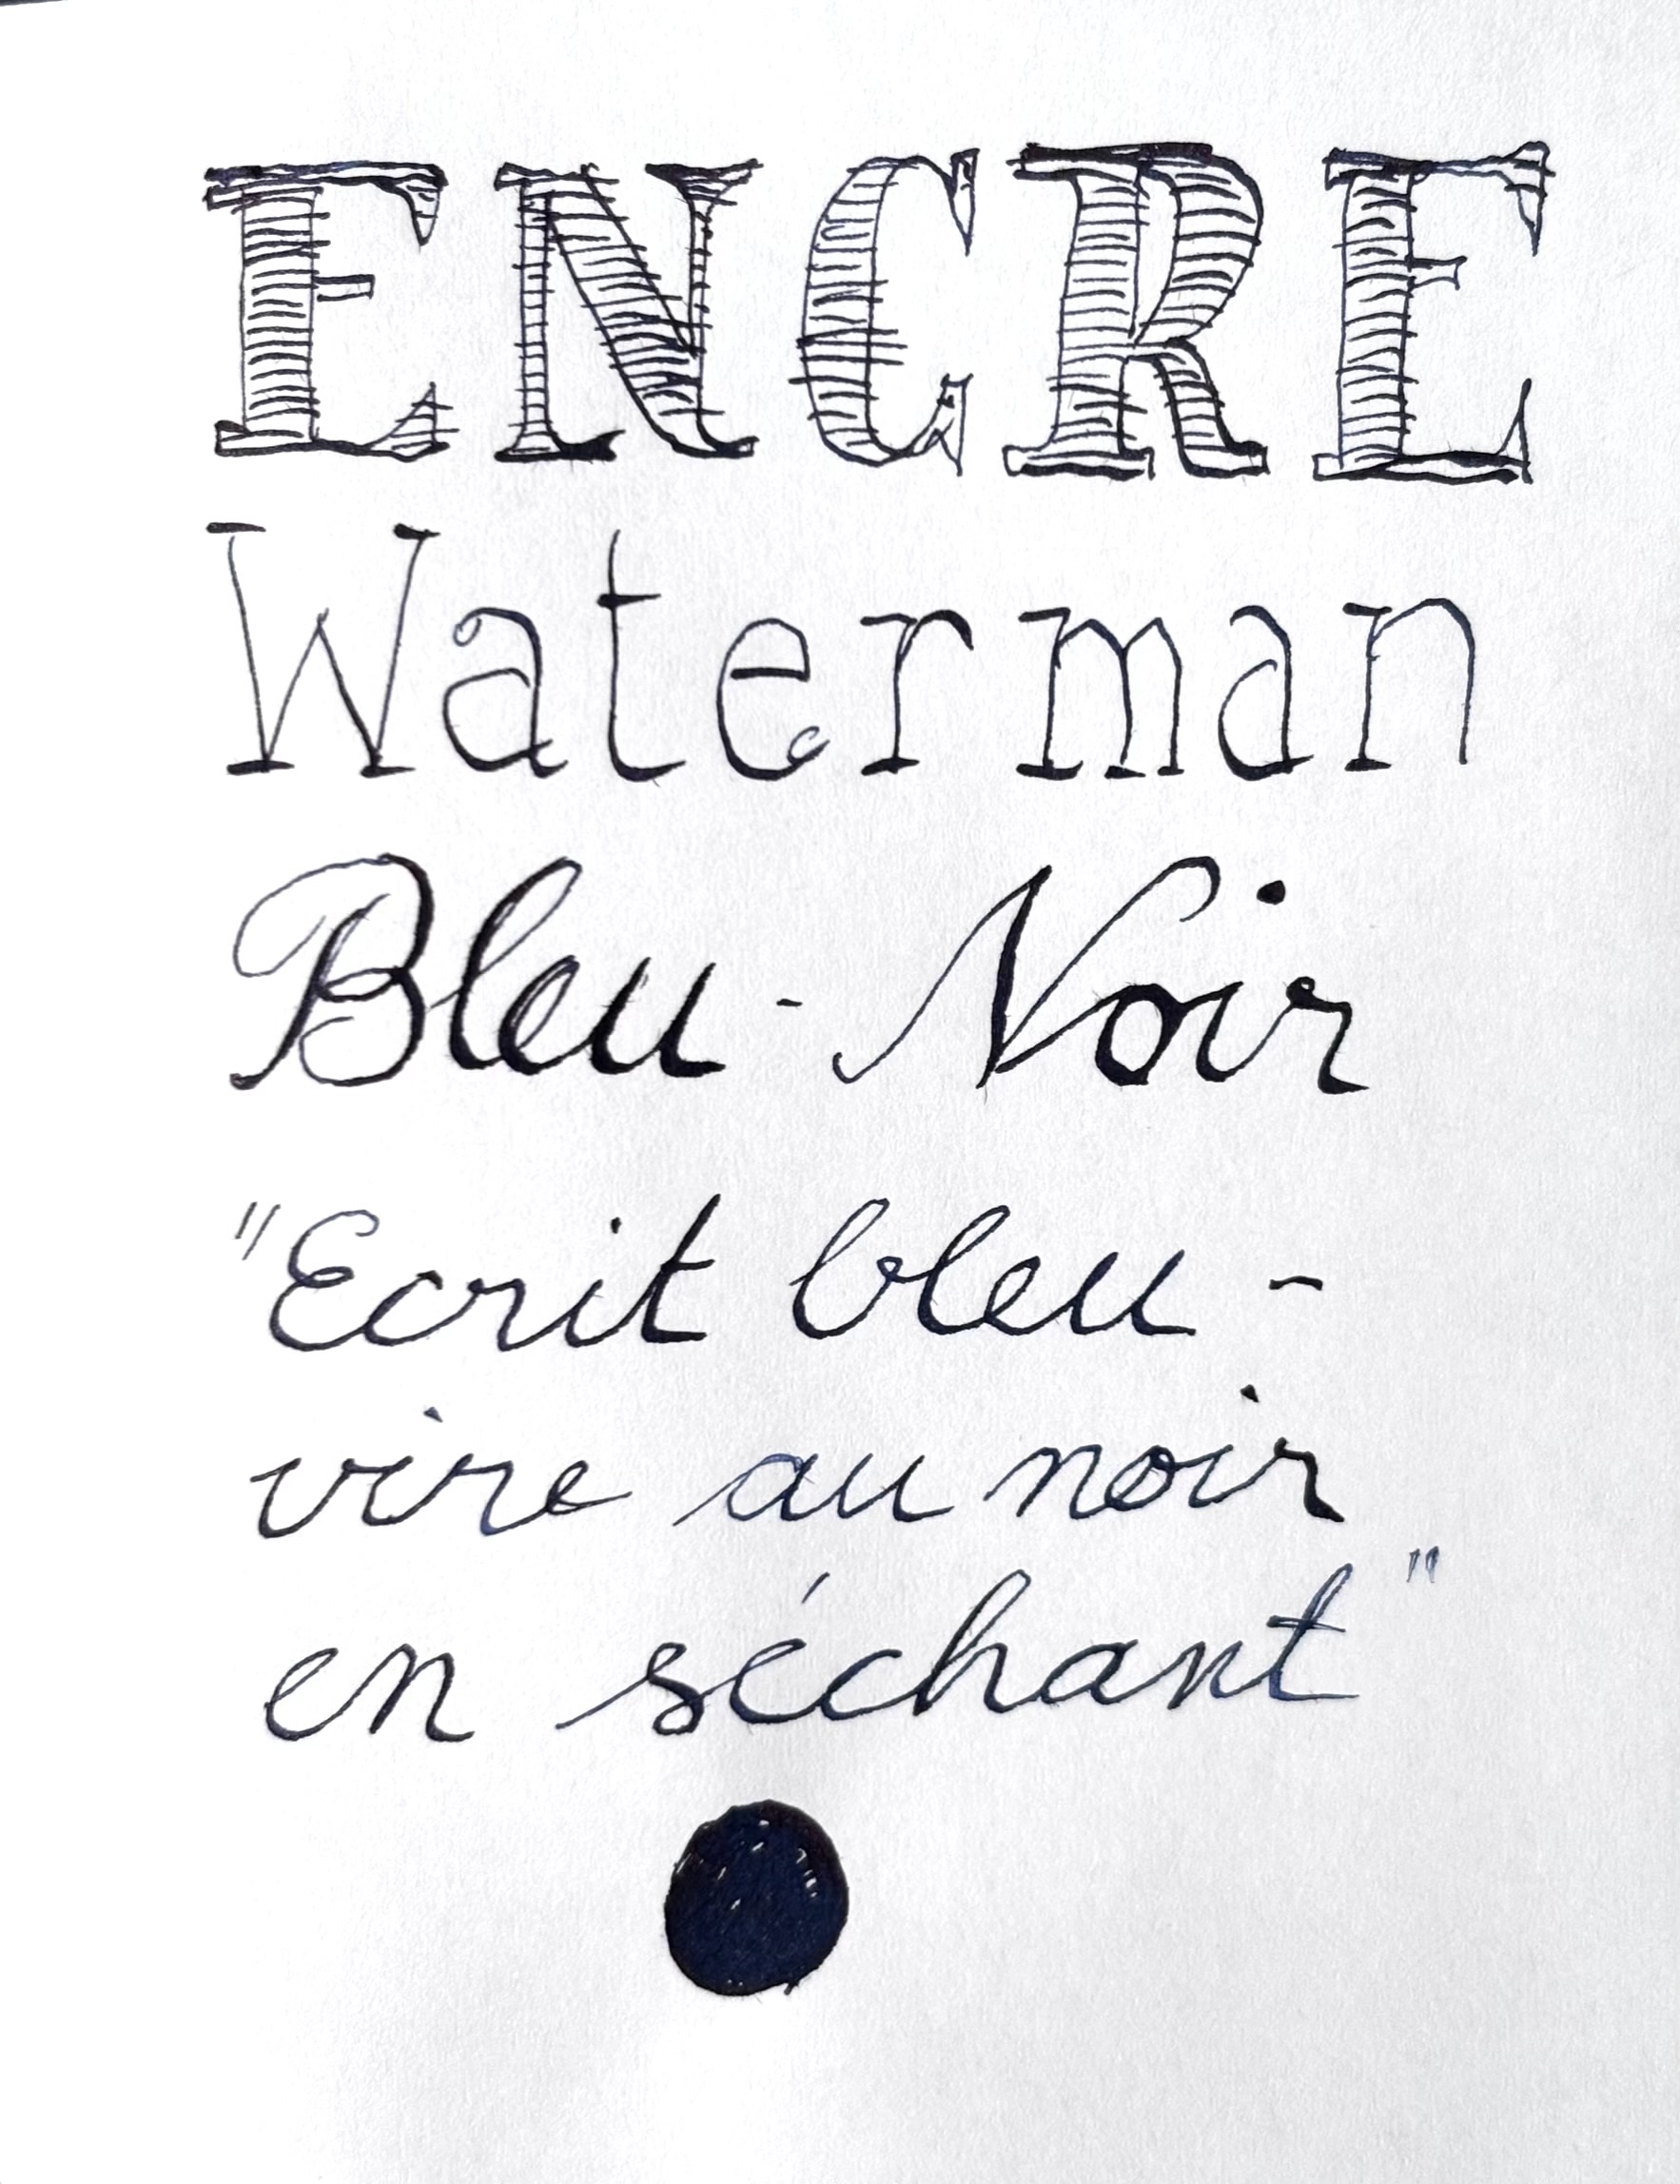 ENCRE
Waterman
Bleu - Noir
"Ecrit bleu -
vire au noir
en séchant"